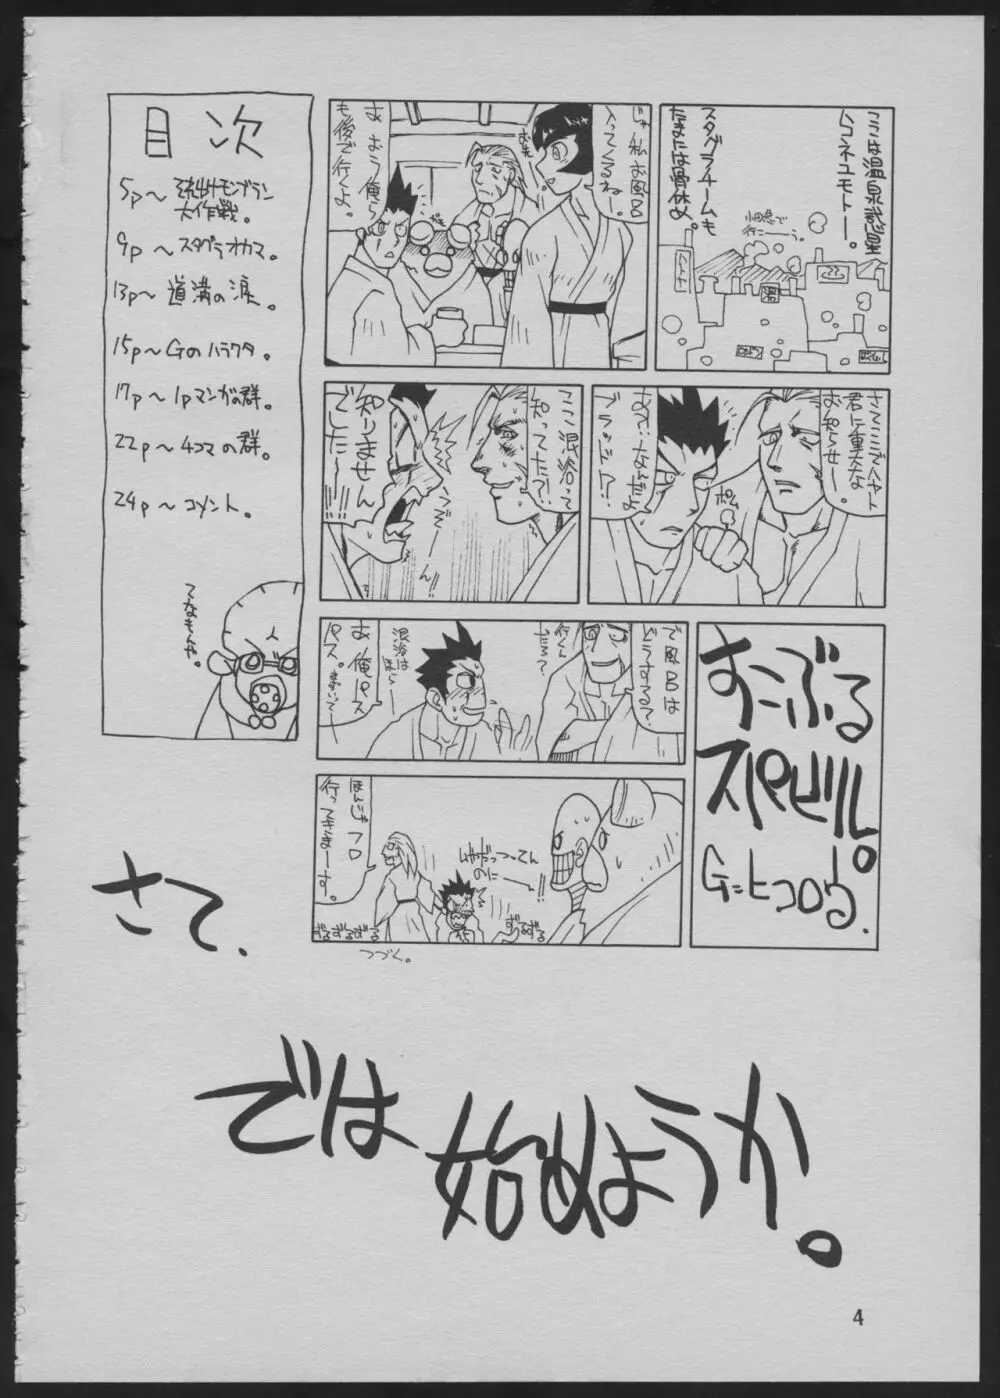 目次
5p～ 流出モンブラン
大作戦。
9p ～スタグラオカマ。
13p～ 道溝の涙。
15p～Gのハラワタ。
17p～1pマンガの群。
22p～4コマの群。
24p～コメント。
てなもんや。
ここは温泉惑星
ハコネユモトー。
スタグラチームも
たまには骨休め。
じゃ 私お風呂
入ってくるねー。
あ おう俺ら
も後で行くよ。
さてここでハヤト
君に重大な
お知らせー。
おや…なんだよ
ブラッシュ!?
ポム
ここ混浴って
知ってた?
知りません
でしたー
すこぶる
スパビル。
G=ヒコロウ
で風呂は
どうするね
行くん
だろ?
混浴は
あ 俺パス
パス。
ほんじゃフロ
行ってきまーす。
ずるずるずる
ずるずる
つづく。
さて、
では
始めようか。
4